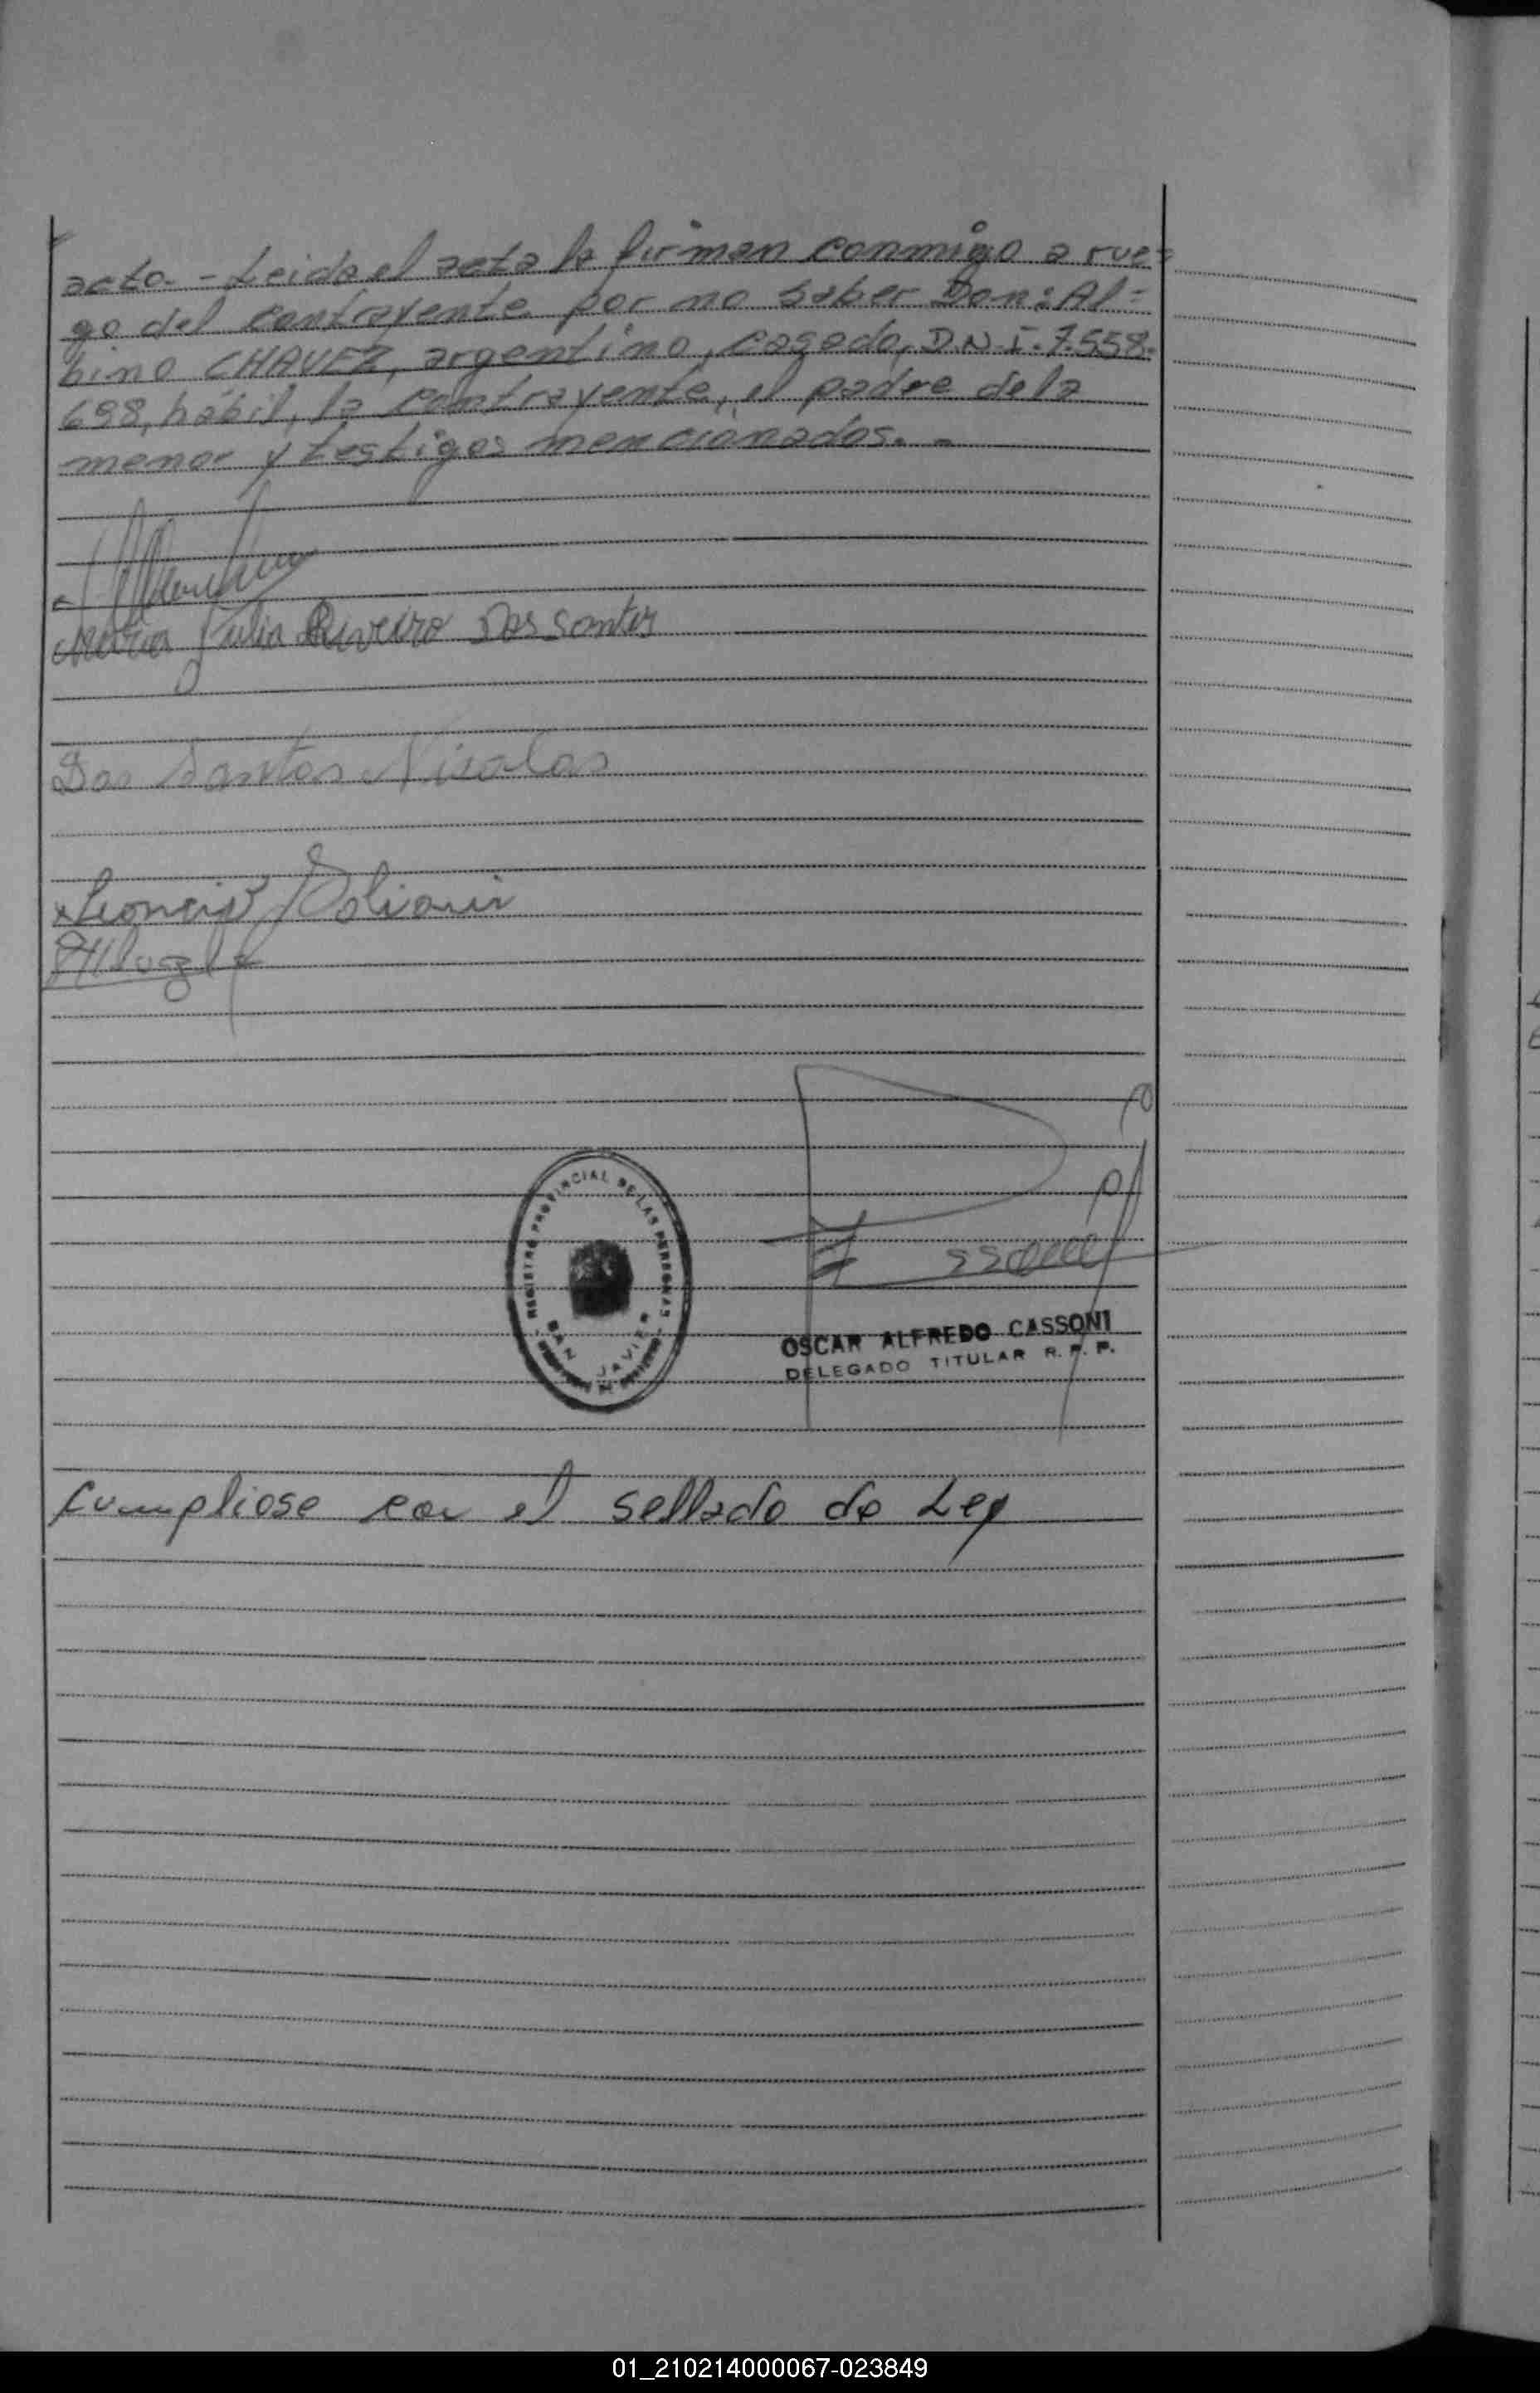 acto.- Leida el acta la firman conmigo a rue=
go del contrayente por no saber Don: Al=
bino CHAVEZ, argentino, casado, D.N.I. 7.558.
698, hábil, la contrayente, el padre de la
menor y testigos mencionados.-
Maria Julia Riveiro Dos Santos
Dos Santos Nicolas
REGISTRO PROVINCIAL DE LAS PERSONAS
SAN JAVIER
OSCAR ALFREDO CASSONI
DELEGADO TITULAR R.P.P.
Cumpliose con el sellado de Ley
01_210214000067-023849